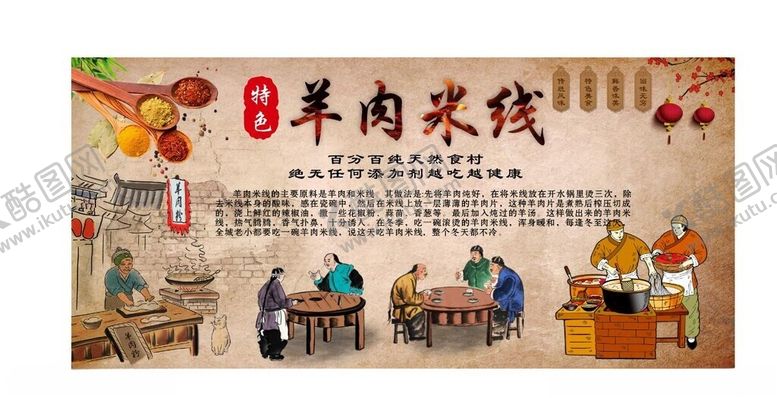 特色
羊肉米线
传统风味
特色美食
鲜香味美
回味无穷
百分百纯天然食村
绝无任何添加剂越吃越健康
羊肉米线的主要原料是羊肉和米线。其做法是:先将羊肉炖好，在将米线放在开水锅里烫三次，除
去米线本身的酸味，感在瓷碗中，然后在米线上放一层薄薄的羊肉片，这种羊肉片是煮熟后榨压切成
的，浇上鲜红的辣椒油，撒一些花椒粉、蒜苗、香葱等，最后加入炖过的羊汤。这种做出来的羊肉米
线，热气腾腾，香气扑鼻，十分诱人。在冬季，吃一碗滚烫的羊肉米线，浑身暖和，每逢冬至这天，
全城老小都要吃一碗羊肉米线，说这天吃羊肉米线，整个冬天都不冷.
羊肉粉
羊肉粉